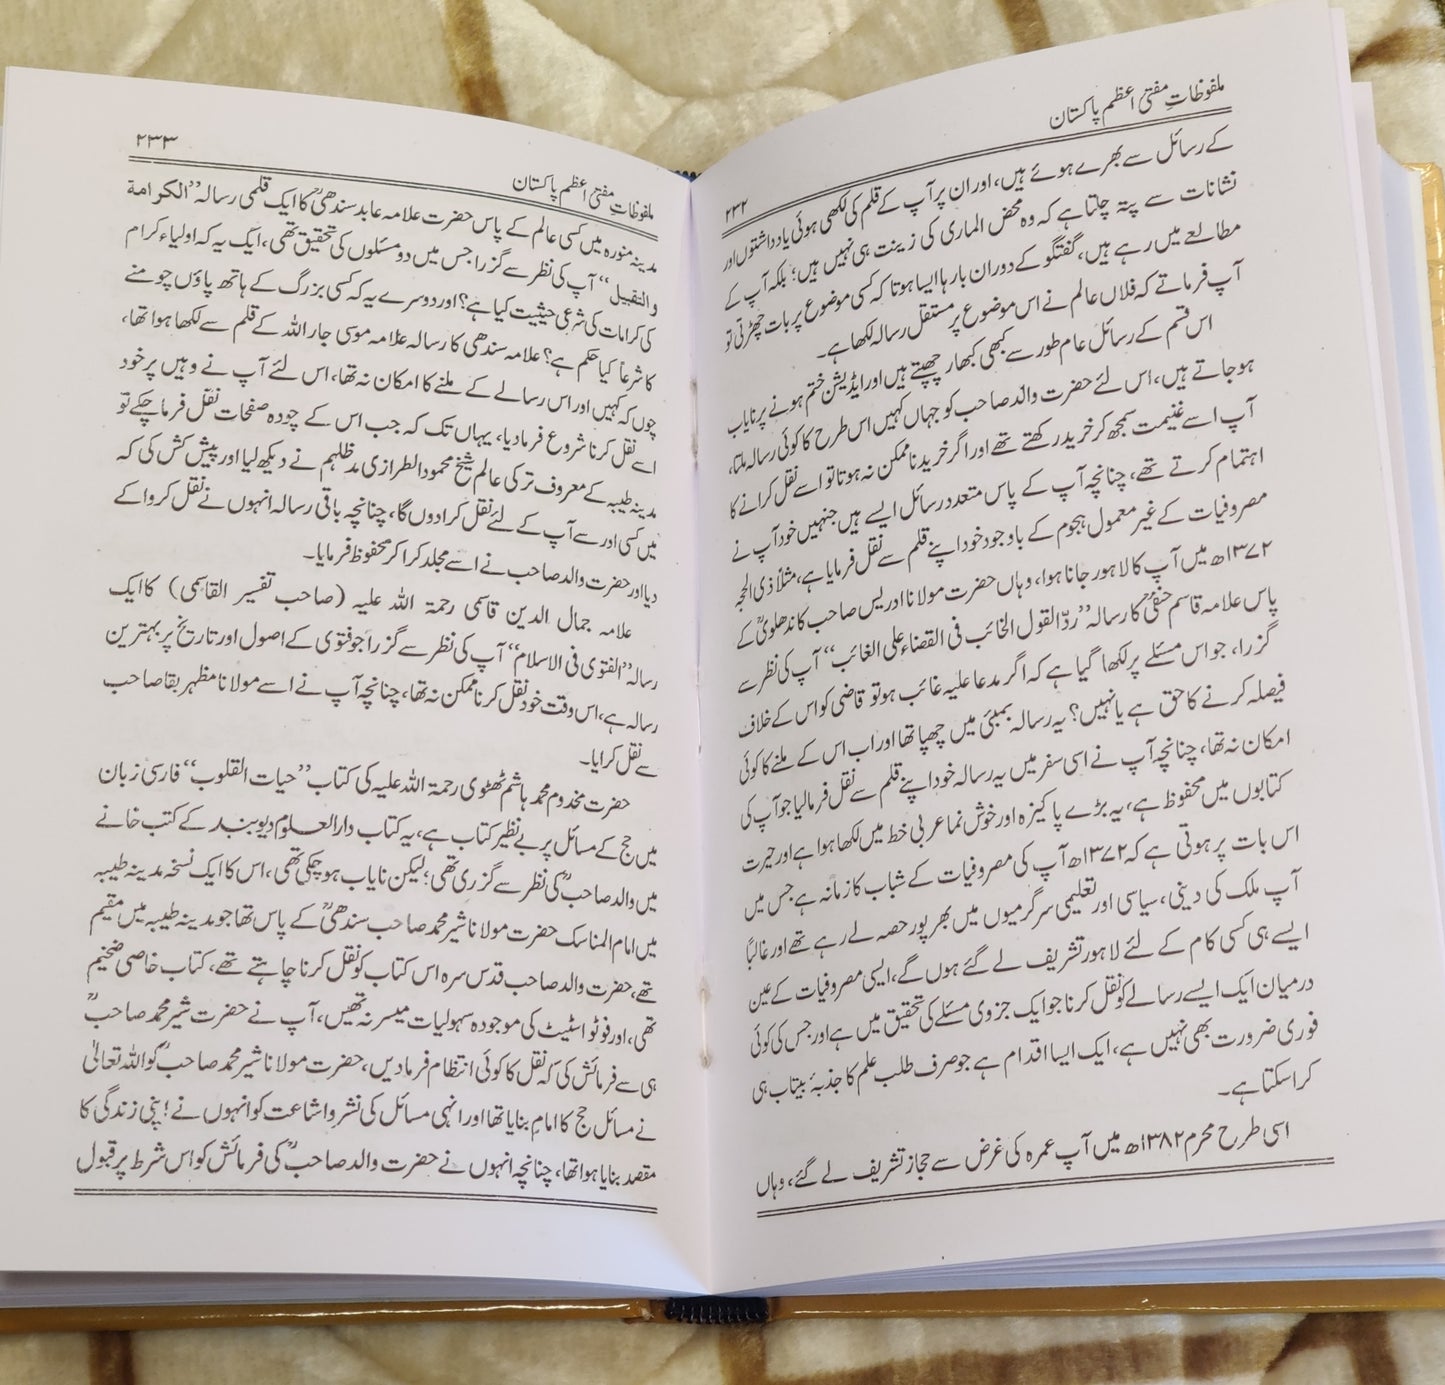 ملفوظاتِ مفتی اعظم پاکستان
۲۳۲
کے رسائل سے بھرے ہوئے ہیں، اور ان پر آپ کے قلم کی لکھی ہوئی یادداشتوں اور
نشانات سے پتہ چلتا ہے کہ وہ محض الماری کی زینت ہی نہیں ہیں؛ بلکہ آپ کے
مطالعے میں رہے ہیں، گفتگو کے دوران بارہا ایسا ہوتا کہ کسی موضوع پر بات چھڑتی تو
آپ فرماتے کہ فلاں عالم نے اس موضوع پر مستقل رسالہ لکھا ہے۔
اس قسم کے رسائل عام طور سے کبھی کبھار چھپتے ہیں اور ایڈیشن ختم ہونے پر نایاب
ہوجاتے ہیں، اس لئے حضرت والد صاحب کو جہاں کہیں اس طرح کا کوئی رسالہ ملتا،
آپ اسے غنیمت سمجھ کر خرید رکھتے تھے اور اگر خریدنا ممکن نہ ہوتا تو اسے نقل کرانے کا
اہتمام کرتے تھے، چنانچہ آپ کے پاس متعدد رسائل ایسے ہیں جنہیں خود آپ نے
مصروفیات کے غیر معمول ہجوم کے باوجود خود اپنے قلم سے نقل فرمایا ہے، مثلاً ذی الحجہ
۱۳۷۲ھ میں آپ کا لاہور جانا ہوا، وہاں حضرت مولانا ادریس صاحب کاندھلویؒ کے
پاس علامہ قاسم حنفیؒ کا رسالہ ’’ردّ القول الخائب فی القضاء علی الغائب‘‘ آپ کی نظر سے
گزرا، جو اس مسئلے پر لکھا گیا ہے کہ اگر مدعا علیہ غائب ہو تو قاضی کو اس کے خلاف
فیصلہ کرنے کا حق ہے یا نہیں؟ یہ رسالہ بمبئی میں چھپا تھا اور اب اس کے ملنے کا کوئی
امکان نہ تھا، چنانچہ آپ نے اسی سفر میں یہ رسالہ خود اپنے قلم سے نقل فرمالیا جو آپ کی
کتابوں میں محفوظ ہے، یہ بڑے پاکیزہ اور خوش نما عربی خط میں لکھا ہوا ہے اور حیرت
اس بات پر ہوتی ہے کہ ۱۳۷۲ھ آپ کی مصروفیات کے شباب کا زمانہ ہے جس میں
آپ ملک کی دینی، سیاسی اور تعلیمی سرگرمیوں میں بھرپور حصہ لے رہے تھے اور غالباً
ایسے ہی کسی کام کے لئے لاہور تشریف لے گئے ہوں گے، ایسی مصروفیات کے عین
درمیان ایک ایسے رسالے کو نقل کرنا جو ایک جزوی مسئلے کی تحقیق میں ہے اور جس کی کوئی
فوری ضرورت بھی نہیں ہے، ایک ایسا اقدام ہے جو صرف طلب علم کا جذبۂ بیتاب ہی
کراسکتا ہے۔
اسی طرح محرم ۱۳۸۲ھ میں آپ عمرہ کی غرض سے حجاز تشریف لے گئے، وہاں
ملفوظاتِ مفتی اعظم پاکستان
۲۳۳
مدینہ منورہ میں کسی عالم کے پاس حضرت علامہ عابد سندھیؒ کا ایک قلمی رسالہ ’’الکرامة
والتقبیل‘‘ آپ کی نظر سے گزرا جس میں دو مسئلوں کی تحقیق تھی، ایک یہ کہ اولیاء کرام
کی کرامات کی شرعی حیثیت کیا ہے؟ اور دوسرے یہ کہ کسی بزرگ کے ہاتھ پاؤں چومنے
کا شرعاً کیا حکم ہے؟ علامہ سندھی کا رسالہ علامہ موسی جار اللہ کے قلم سے لکھا ہوا تھا،
چوں کہ کہیں اور اس رسالے کے ملنے کا امکان نہ تھا، اس لئے آپ نے وہیں پر خود
اسے نقل کرنا شروع فرمادیا، یہاں تک کہ جب اس کے چودہ صفحات نقل فرما چکے تو
مدینہ طیبہ کے معروف ترکی عالم شیخ محمود الطرازی مدظلہم نے دیکھ لیا اور پیش کش کی کہ
میں کسی اور سے آپ کے لئے نقل کرادوں گا، چنانچہ باقی رسالہ انہوں نے نقل کروا کے
دیا اور حضرت والد صاحب نے اسے مجلد کرا کر محفوظ فرمایا۔
علامہ جمال الدین قاسمی رحمۃ اللہ علیہ (صاحب تفسیر القاسمی) کا ایک
رسالہ ’’الفتوی فی الاسلام‘‘ آپ کی نظر سے گزرا جو فتوی کے اصول اور تاریخ پر بہترین
رسالہ ہے، اس وقت خود نقل کرنا ممکن نہ تھا، چنانچہ آپ نے اسے مولانا مظہر بقا صاحب
سے نقل کرایا۔
حضرت مخدوم محمد ہاشم ٹھٹھوی رحمۃ اللہ علیہ کی کتاب ’’حیات القلوب‘‘ فارسی زبان
میں حج کے مسائل پر بے نظیر کتاب ہے، یہ کتاب دارالعلوم دیوبند کے کتب خانے
میں والد صاحبؒ کی نظر سے گزری تھی؛ لیکن نایاب ہوچکی تھی، اس کا ایک نسخہ مدینہ طیبہ
میں امام المناسک حضرت مولانا شیر محمد صاحب سندھیؒ کے پاس تھا جو مدینہ طیبہ میں مقیم
تھے، حضرت والد صاحب قدس سرہ اس کتاب کو نقل کرنا چاہتے تھے، کتاب خاصی ضخیم
تھی، اور فوٹو اسٹیٹ کی موجودہ سہولیات میسر نہ تھیں، آپ نے حضرت شیر محمد صاحبؒ
ہی سے فرمائش کی کہ نقل کا کوئی انتظام فرمادیں، حضرت مولانا شیر محمد صاحبؒ کو اللہ تعالیٰ
نے مسائل حج کا امام بنایا تھا اور انہی مسائل کی نشر واشاعت کو انہوں نے اپنی زندگی کا
مقصد بنایا ہوا تھا، چنانچہ انہوں نے حضرت والد صاحبؒ کی فرمائش کو اس شرط پر قبول